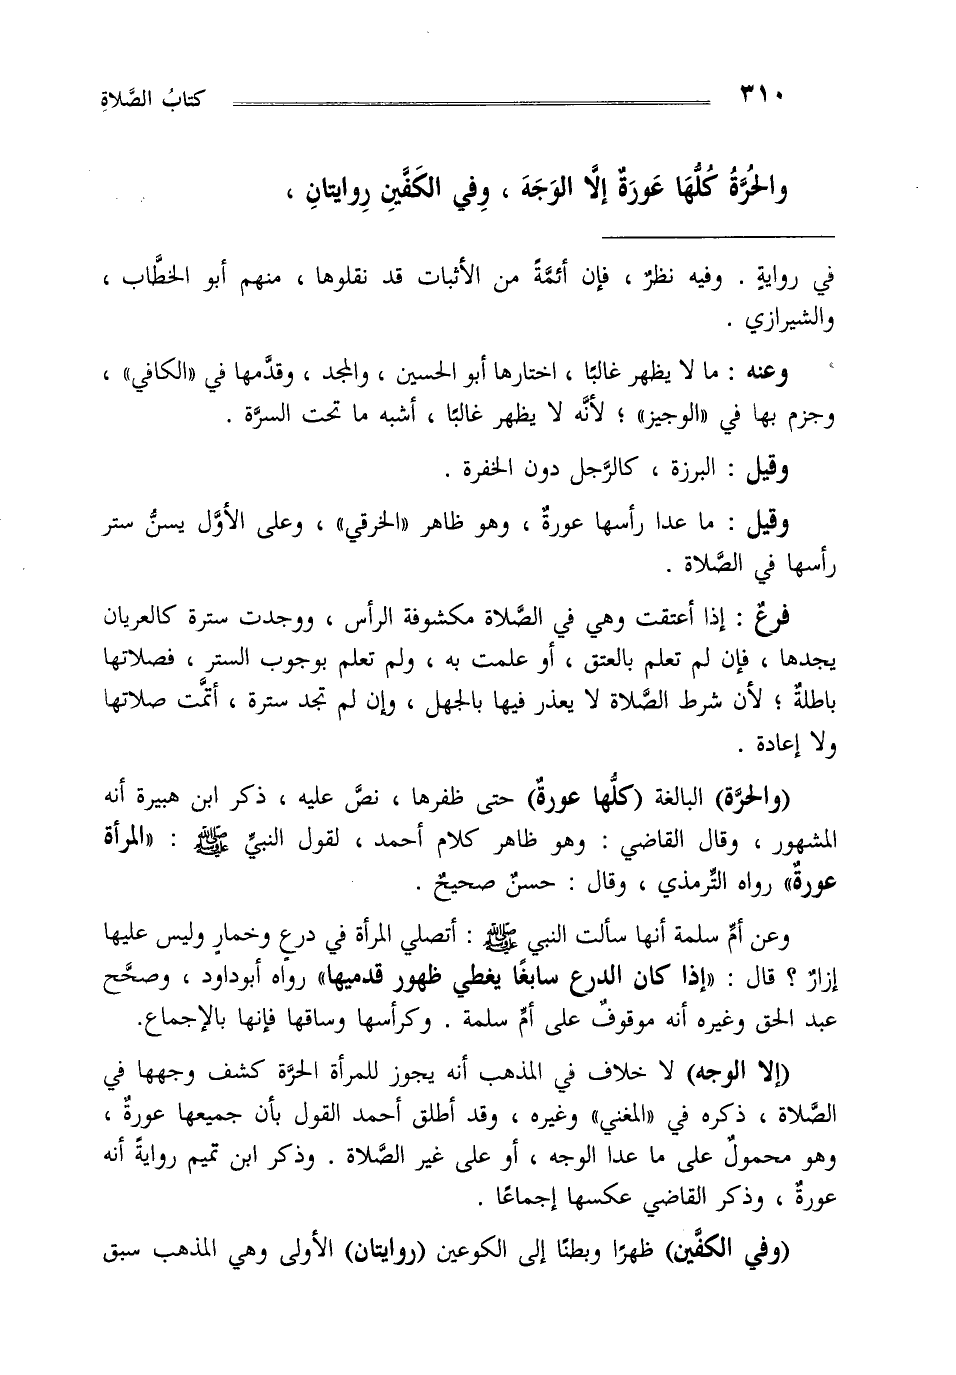 ٣١٠ كتابُ الصَّلاةِ
والحُرَّةُ كُلُّهَا عَورَةٌ إلَّا الوَجَهَ ، وفي الكَفَّينِ رِوايتانِ ،
في روايةٍ . وفيه نظرٌ ، فإن أئمَّةً من الأثبات قد نقلوها ، منهم أبو الخطَّاب ،
والشيرازي .
وعنه : ما لا يظهر غالبًا ، اختارها أبو الحسين ، والمجد ، وقدَّمها في «الكافي» ،
وجزم بها في «الوجيز» ؛ لأنَّه لا يظهر غالبًا ، أشبه ما تحت السرَّة .
وقيل : البرزة ، كالرَّجل دون الخفرة .
وقيل : ما عدا رأسها عورةٌ ، وهو ظاهر «الخرقي» ، وعلى الأوَّل يسنُّ ستر
رأسها في الصَّلاة .
فرعٌ : إذا أعتقت وهي في الصَّلاة مكشوفة الرأس ، ووجدت سترة كالعريان
يجدها ، فإن لم تعلم بالعتق ، أو علمت به ، ولم تعلم بوجوب الستر ، فصلاتها
باطلةٌ ؛ لأن شرط الصَّلاة لا يعذر فيها بالجهل ، وإن لم تجد سترة ، أتمَّت صلاتها
ولا إعادة .
(والحرَّة) البالغة (كلُّها عورةٌ) حتى ظفرها ، نصَّ عليه ، ذكر ابن هبيرة أنه
المشهور ، وقال القاضي : وهو ظاهر كلام أحمد ، لقول النبيِّ ﷺ : «المرأة
عورةٌ» رواه التِّرمذي ، وقال : حسنٌ صحيحٌ .
وعن أمِّ سلمة أنها سألت النبي ﷺ : أتصلي المرأة في درعٍ وخمارٍ وليس عليها
إزارٌ ؟ قال : «إذا كان الدرع سابغًا يغطي ظهور قدميها» رواه أبوداود ، وصحَّح
عبد الحق وغيره أنه موقوفٌ على أمِّ سلمة . وكرأسها وساقها فإنها بالإجماع.
(إلا الوجه) لا خلاف في المذهب أنه يجوز للمرأة الحرَّة كشف وجهها في
الصَّلاة ، ذكره في «المغني» وغيره ، وقد أطلق أحمد القول بأن جميعها عورةٌ ،
وهو محمولٌ على ما عدا الوجه ، أو على غير الصَّلاة . وذكر ابن تميم روايةً أنه
عورةٌ ، وذكر القاضي عكسها إجماعًا .
(وفي الكفَّين) ظهرًا وبطنًا إلى الكوعين (روايتان) الأولى وهي المذهب سبق